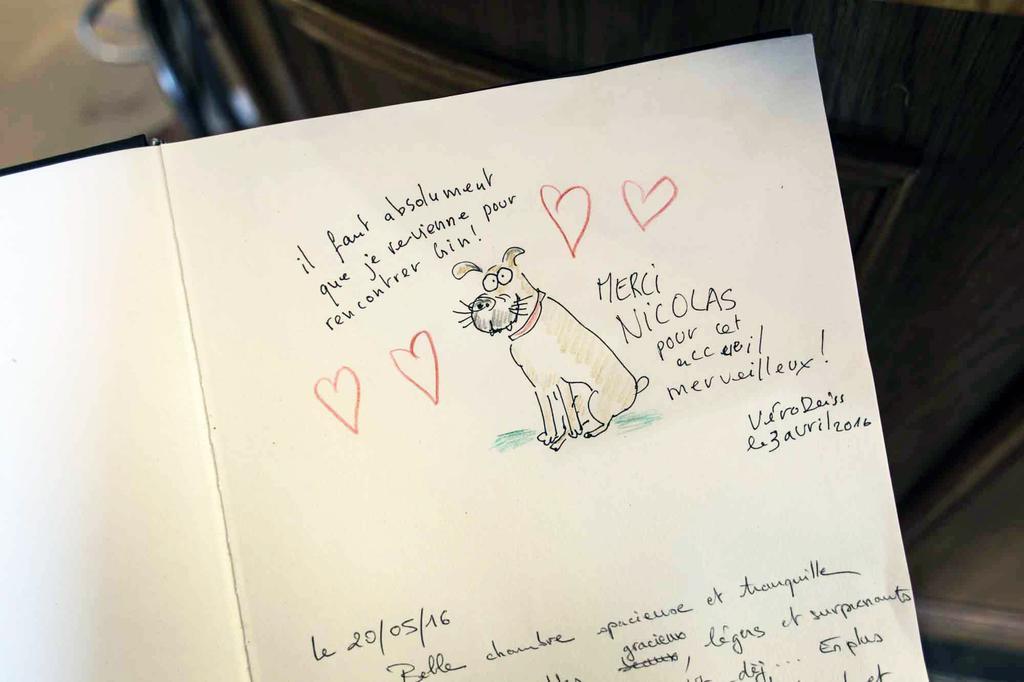 il faut absolument
que je revienne pour
rencontrer Gin!
MERCI
NICOLAS
pour cet
accueil
merveilleux!
Véro Deiss
le 3 avril 2016
le 20/05/16
Belle chambre spacieuse et tranquille
gracieux, légers et surprenants
déj... En plus
et